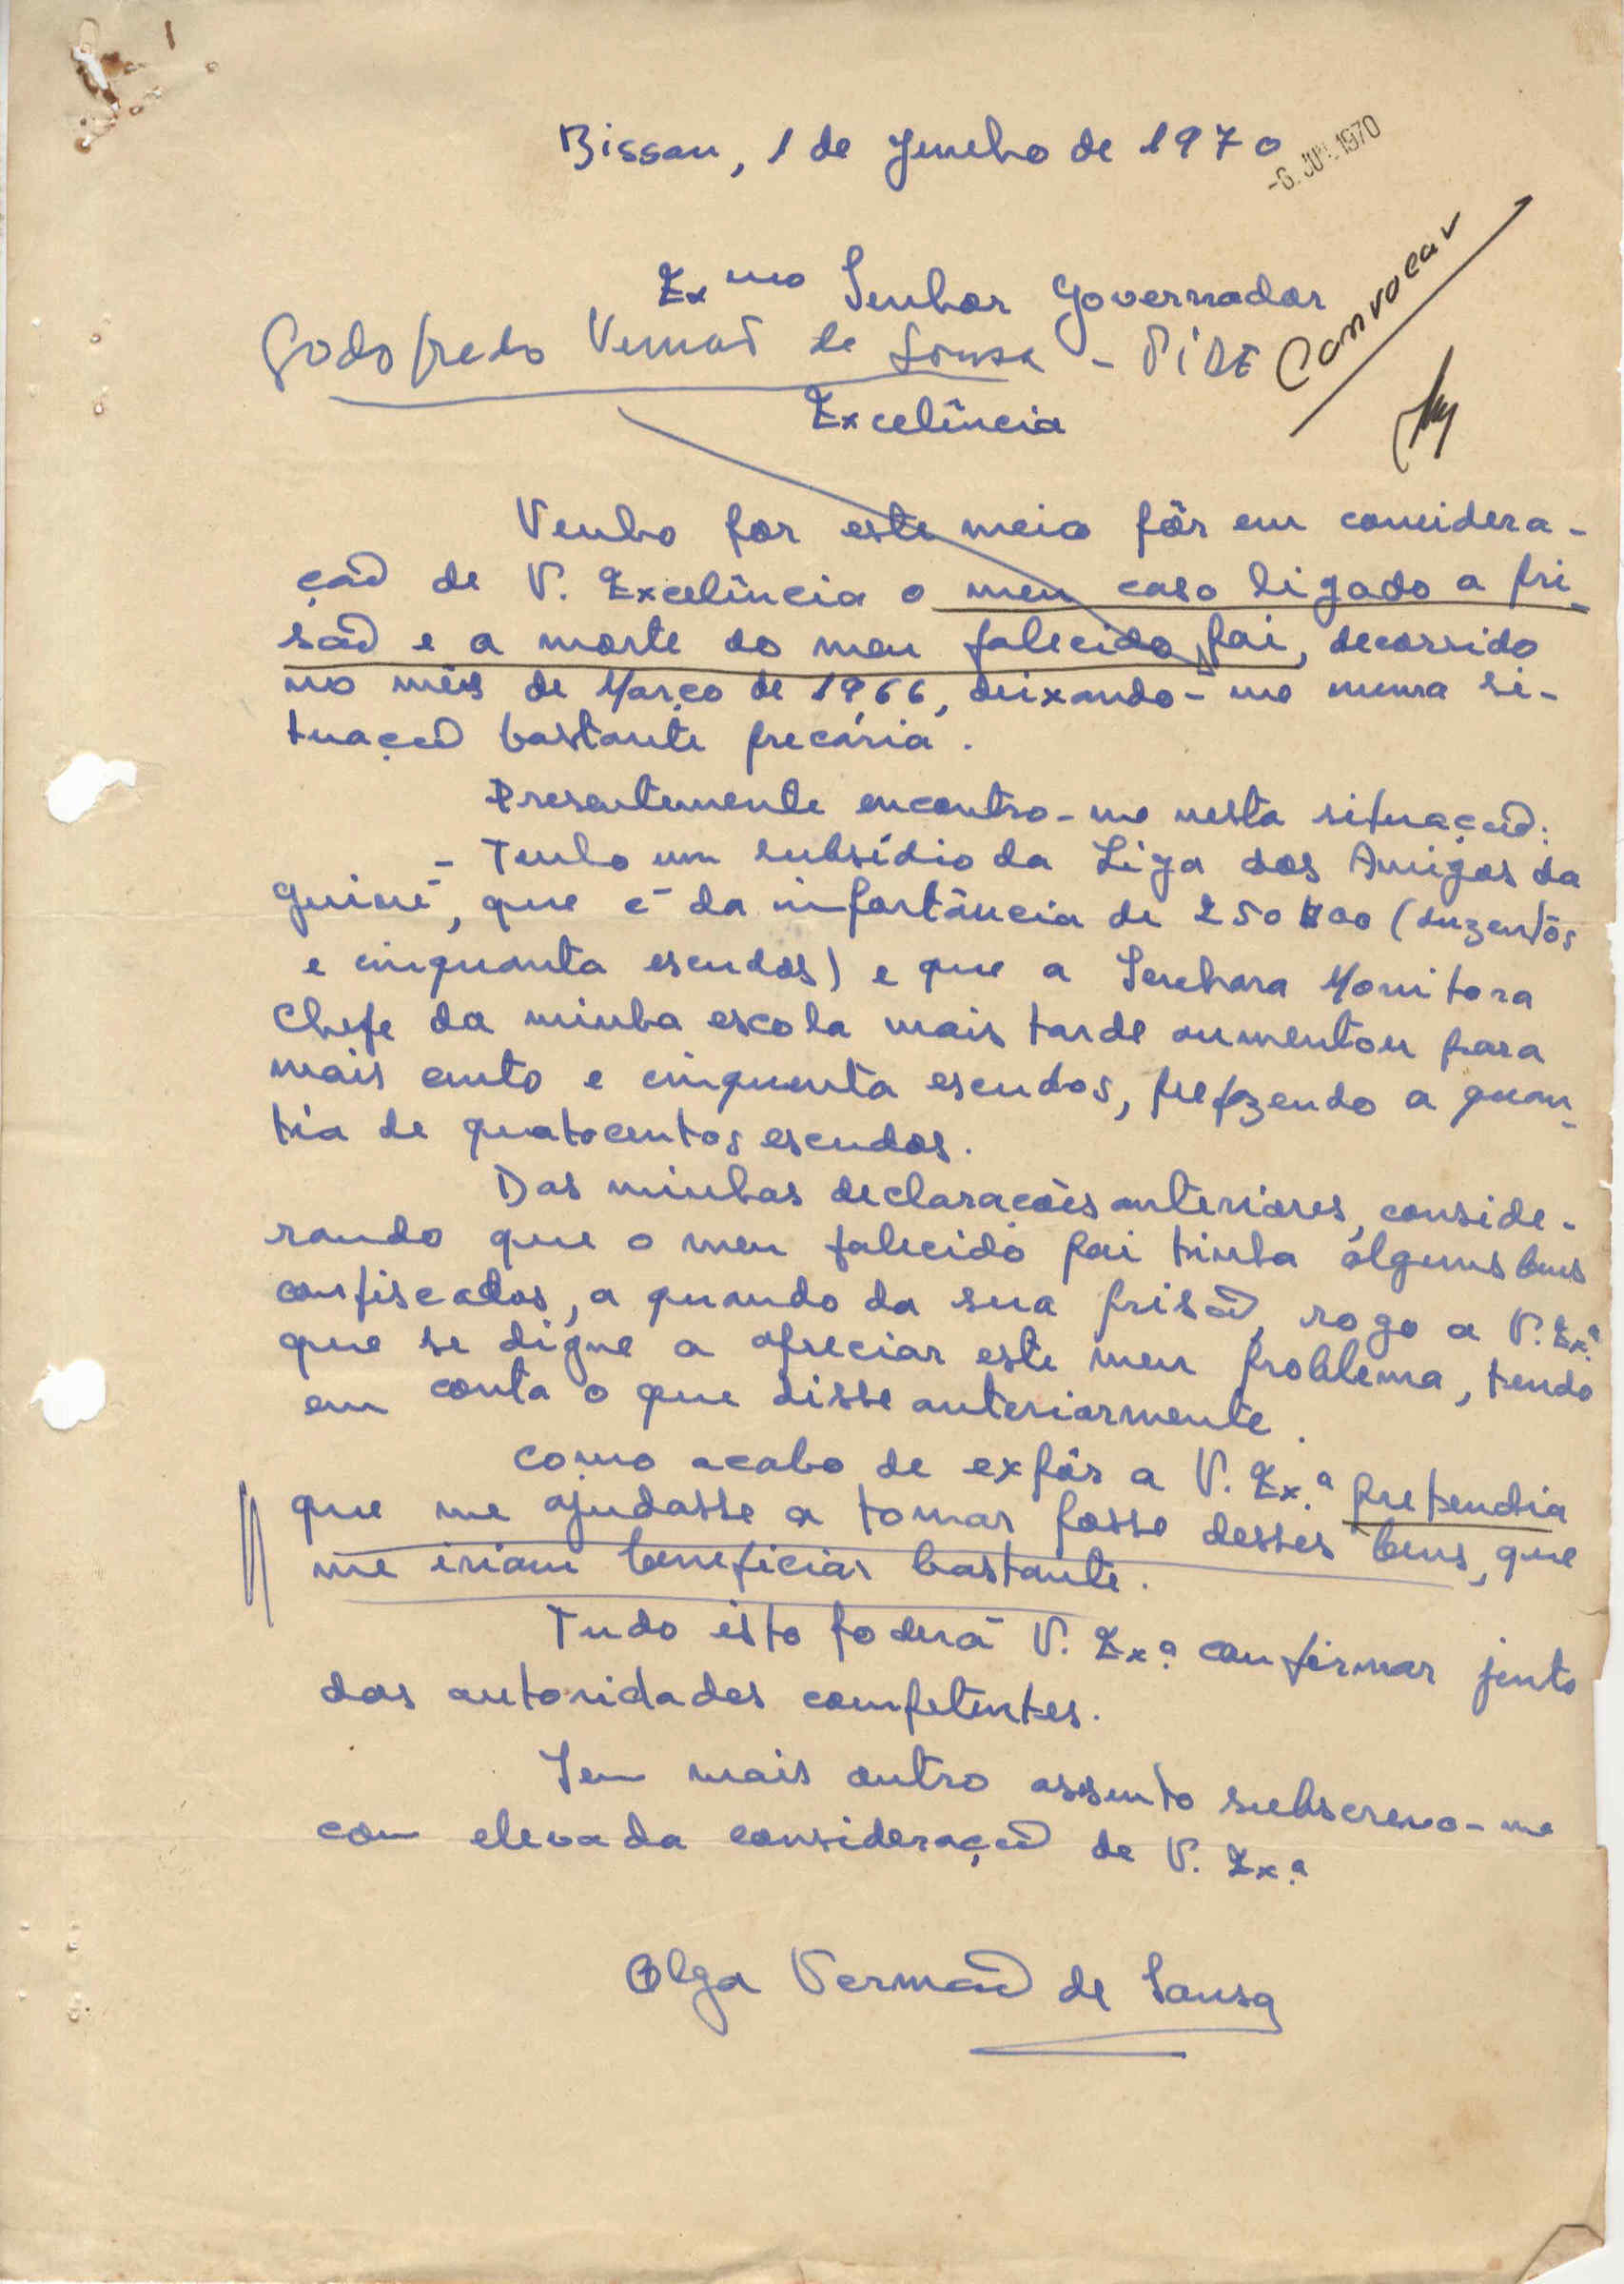 Bissau, 1 de Junho de 1970
-6. JUN. 1970
Exmo Senhor Governador
Godofredo Vermão de Sousa - PIDE
Convocar
Excelência
Venho por este meio pôr em considera-
ção de V. Excelência o meu caso ligado a pri-
são e a morte do meu falecido pai, decorrido
no mês de Março de 1966, deixando-me numa si-
tuação bastante precária.
Presentemente encontro-me nesta situação:
- Tenho um subsídio da Liga dos Amigos da
Guiné, que é da importância de 250$00 (duzentos
e cinquenta escudos) e que a Senhora Monitora
Chefe da minha escola mais tarde aumentou para
mais cento e cinquenta escudos, prefazendo a quan-
tia de quatocentos escudos.
Das minhas declarações anteriores, conside-
rando que o meu falecido pai tinha alguns bens
confiscados, a quando da sua prisão, rogo a V. Ex.ª
que se digne a apreciar este meu problema, tendo
em conta o que disse anteriormente.
Como acabo de expôr a V. Ex.ª pretendia
que me ajudasse a tomar posse desses bens, que
me iriam beneficiar bastante.
Tudo isto poderá V. Ex.ª confirmar junto
das autoridades competentes.
Sem mais outro assunto subscrevo-me
com elevada consideração de V. Ex.ª
Olga Vermão de Sousa